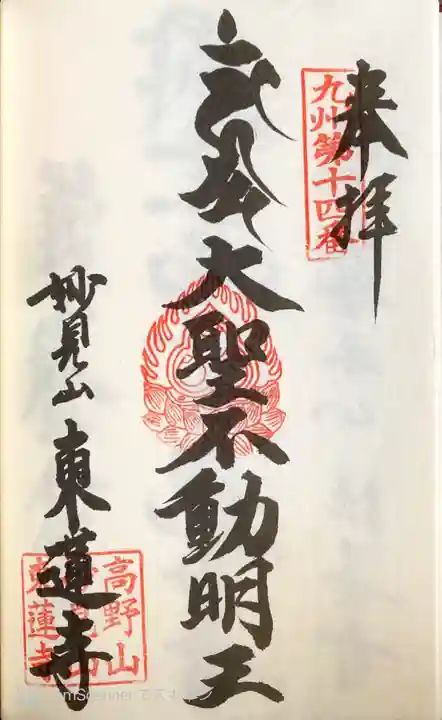 奉拝
九州第十四番
大聖不動明王
妙見山
東蓮寺
高野山
東蓮寺
CamScanner でスキャン